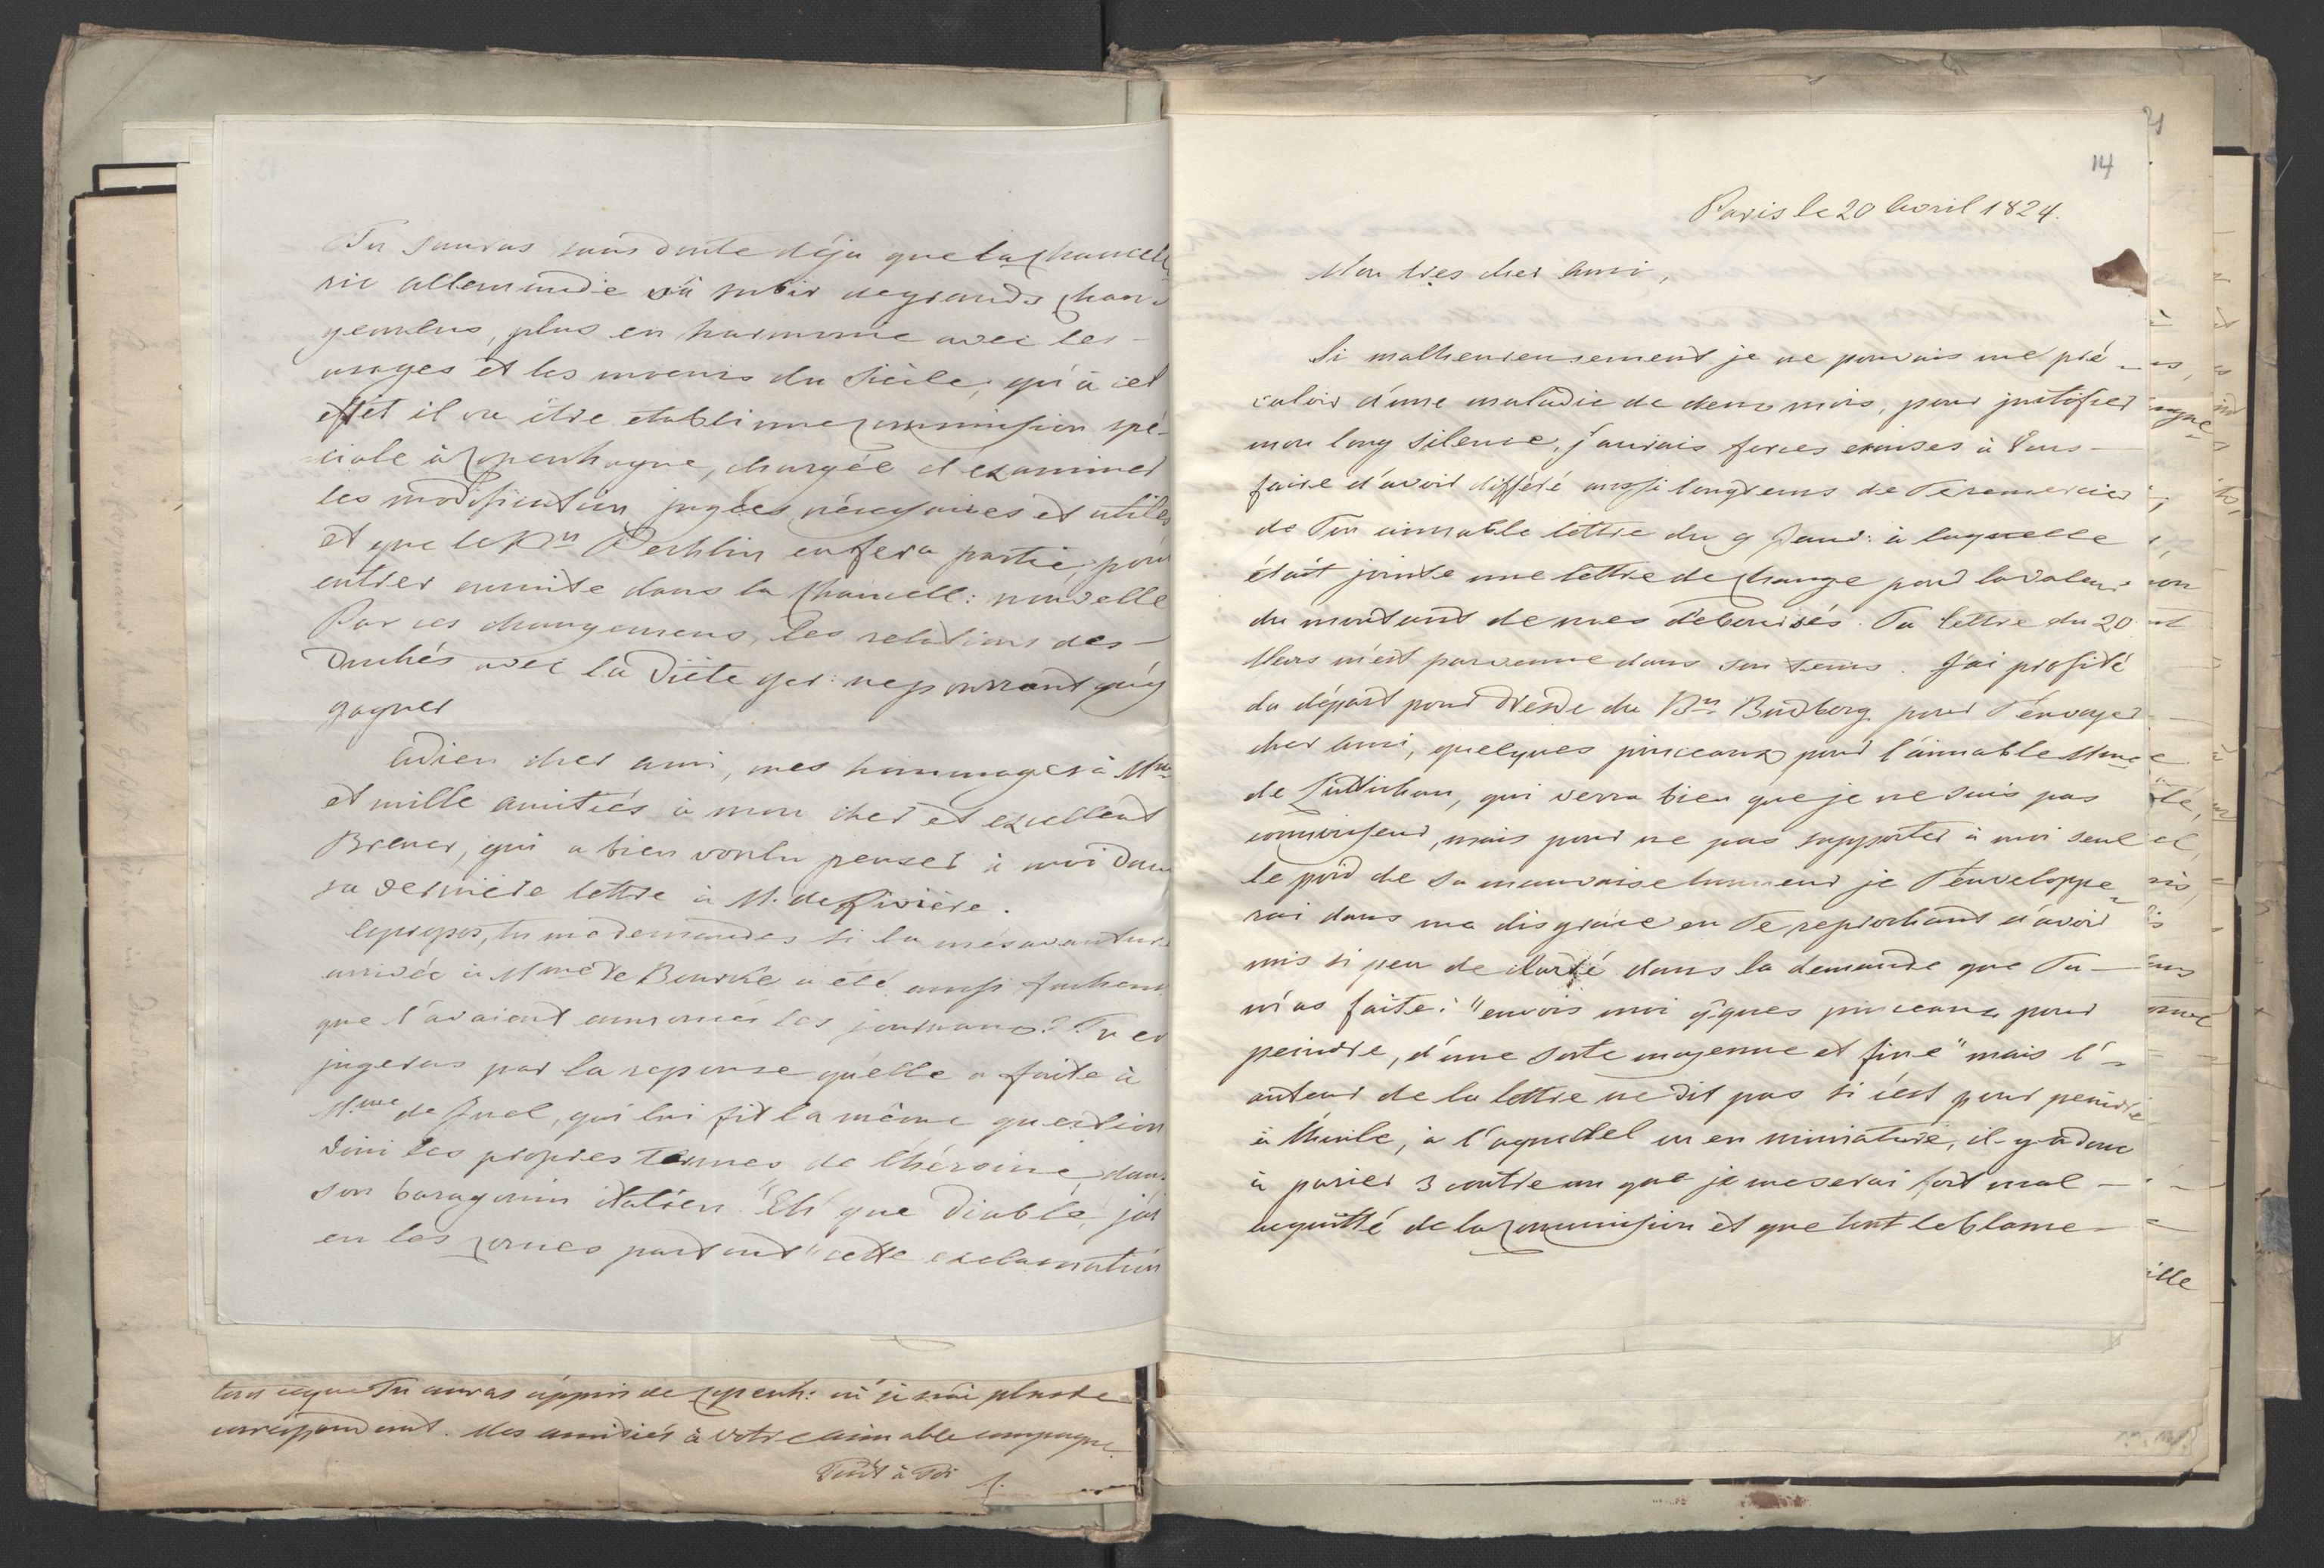 Tu sauras sans doute déja que la Chancele-
rie allemande va subir de grands chan-
gemens, plus en harmonie avec les
usages et les moeurs du Siècle; qu'à cet
effet il va être etabli une Commission spé-
ciale à Copenhague, chargée d'examiner
les modification jugées nécessaires et utiles
et que le Bn Pechlin en fera partie, pour
entrer ensuite dans la Chancell: nouvelle
Par ces changemens, les relations des
Duchés avec la Diète ger: ne pourront qu'y
gagner
Adieu cher ami, mes hommages à Mme
et mille amitiés à mon cher et excellent
Breuer, qui a bien voulu penser à moi dans
sa dernière lettre à M. de Rivière.
Apropos, tu me demandes si la mésaventure
arrivée à Mme de Bourke a été aussi facheuse
que l'avaient annoncés les journaux? Tu en
jugeras par la reponse qu'elle a faite à
Mme de Juel, qui lui fit la même question
Voici les propres termes de l'héroine, dans
son baragouin italien "Eh que Diable, j'ai
en les Cornes partout" cette exclamation
tout ceque Tu auras appris de Copenh: où je n'ai plus de
correspondant. Mes amitiés à Votre aimable compagne
Tout à Toi
14
Paris le 20 Avril 1824.
Mon tres cher Ami,
Si malheureusement je ne pouvais me pré-
valoir d'une maladie de deux mois, pour justifier
mon long silence, j'aurais forces excuses à Vous
faire d'avoir différé aussi longtems de Te remercier
de Ton aimable lettre du 9 Janv: à laquelle
était jointe une lettre de Change pour la valeur
du montant de mes déboursés. Ta lettre du 20
Mars m'est parvenue dans son tems. J'ai profité
du départ pour Dresde du Bn Budberg pour T'envoyer
cher Ami, quelques pinceaux pour l'aimable Mme
de Lüttichau, qui verra bien que je ne suis pas
connoisseur, mais pour ne pas supporter à moi seul
le poid de sa mauvaise humeur je T'enveloppe-
rai dans ma disgrâce en Te reprochant d'avoir
mis si peu de clarté dans la demande que Tu
m'as faite: "envois moi q̃ques pinceaux pour
peindre, d'une sorte moyenne et fine" mais l'-
auteur de la lettre ne dit pas si c'est pour peindre
à l'huile, à l'aquarel ou en miniature, il-y-a donc
à parier 3 contre un que je me serai fort mal
acquitté de la Commission et que tout le blame